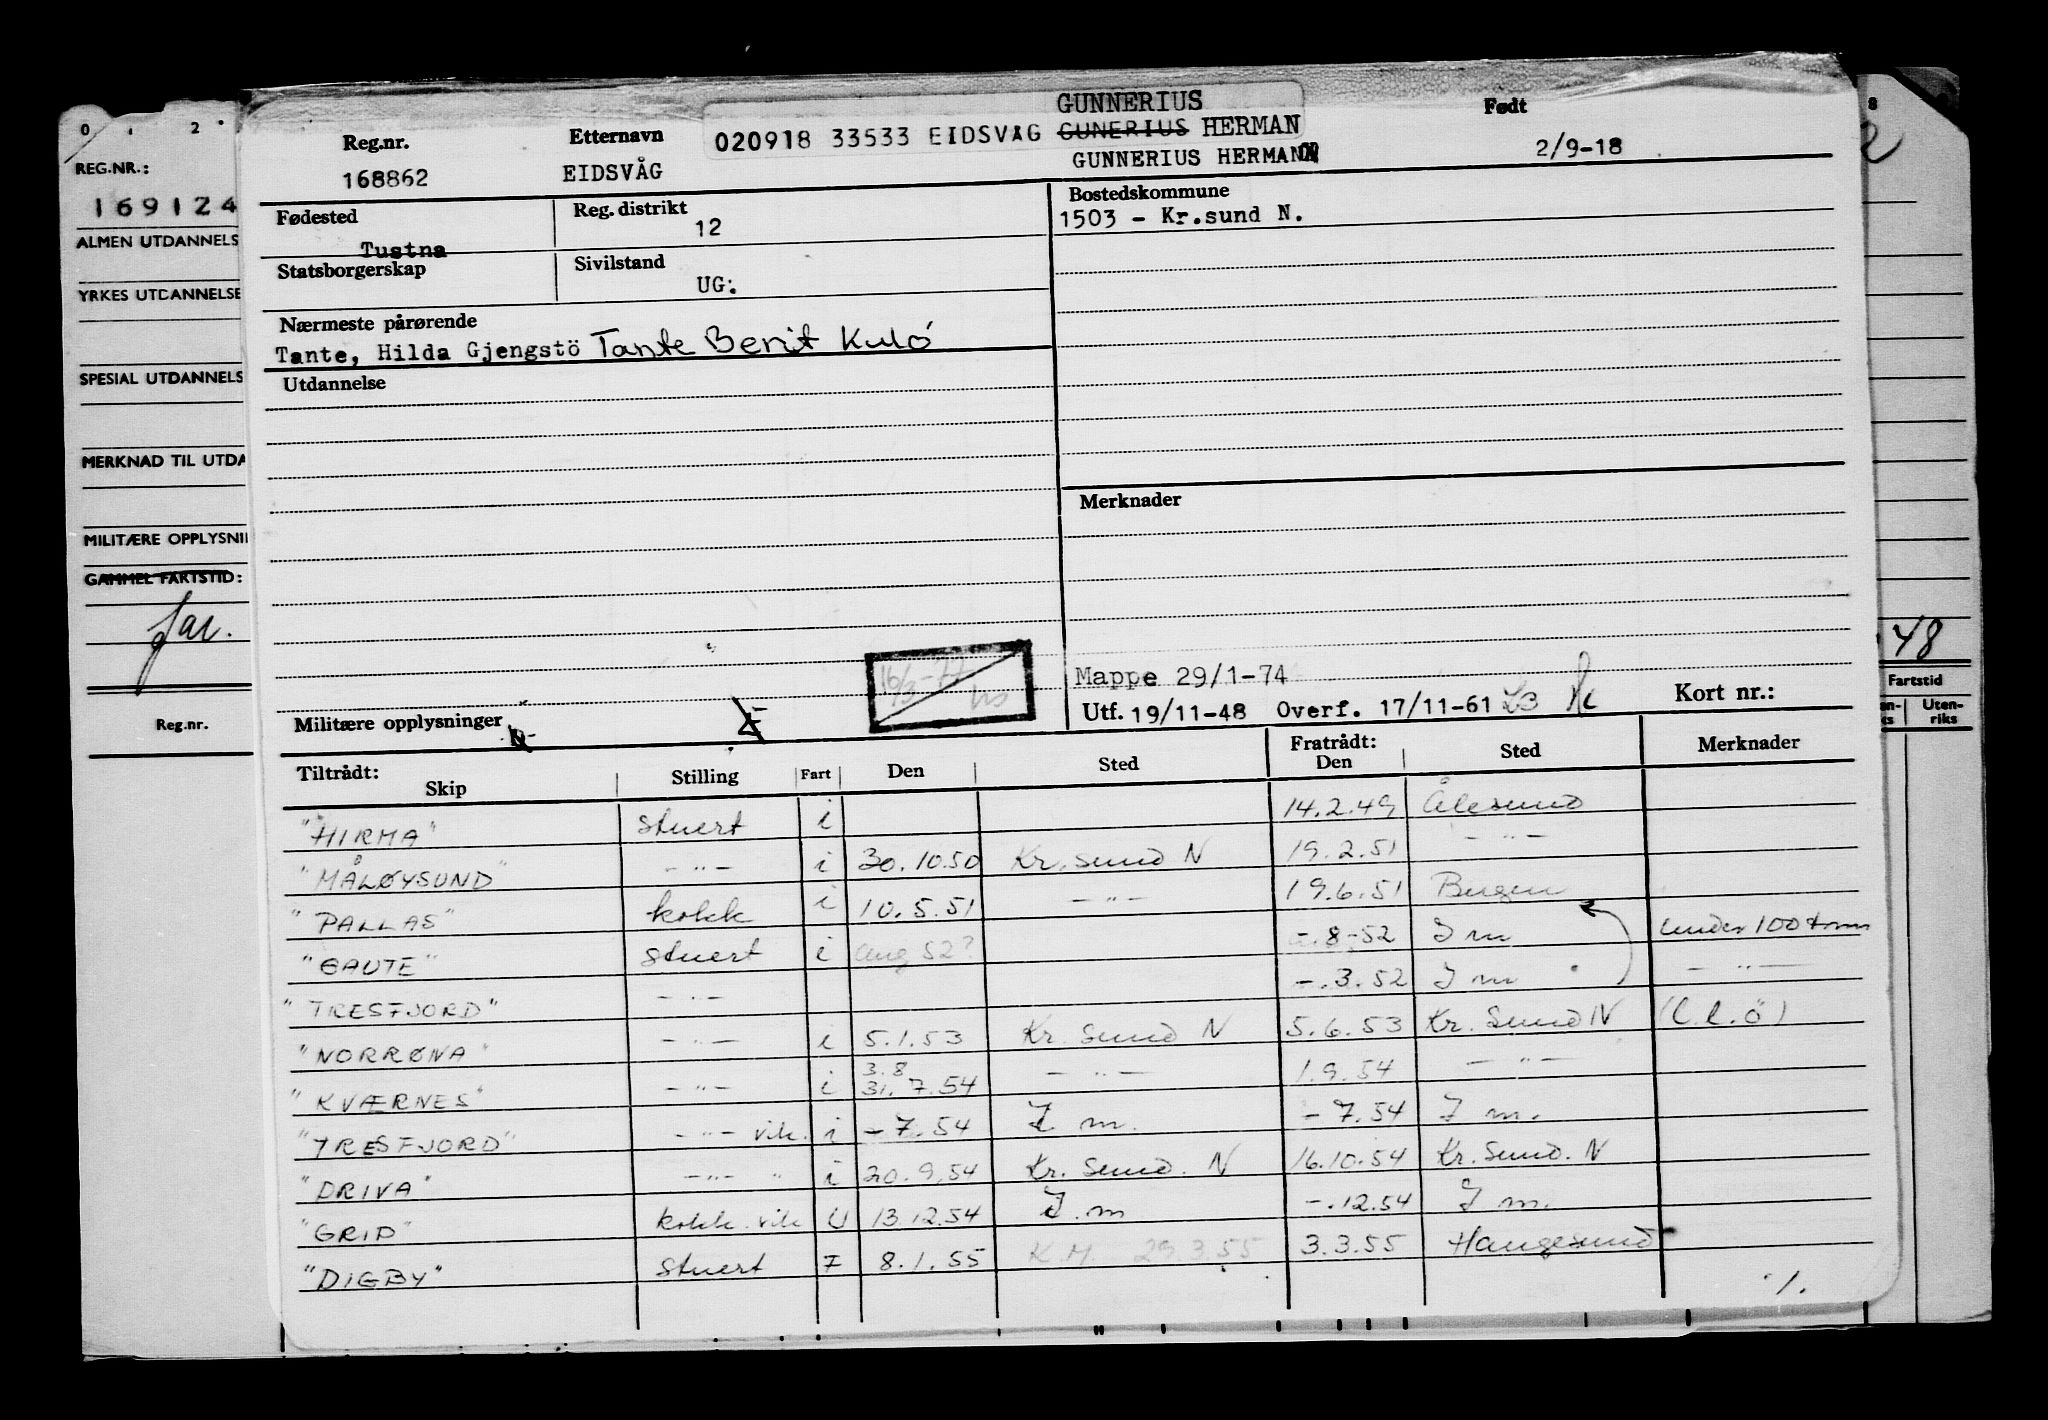 GUNNERIUS
020918 33533 EIDSVÅG GUNERIUS HERMAN
Reg.nr. Etternavn Født
168862 EIDSVÅG GUNNERIUS HERMAN 2/9-18
Fødested Reg. distrikt Bostedskommune
Tustna 12 1503 - Kr.sund N.
Statsborgerskap Sivilstand
UG:
Nærmeste pårørende
Tante, Hilda Gjengstö Tante Berit Kulö
Utdannelse
Merknader
16/3-77
Mappe 29/1-74
Militære opplysninger Utf. 19/11-48 Overf. 17/11-61 Kort nr.:
Tiltrådt: Skip Stilling Fart Den Sted Fratrådt: Den Sted Merknader
"HIRMA" Stuert i 14.2.49 Ålesund
"MÅLØYSUND" -"- i 30.10.50 Kr.sund N 19.2.51 -"-
"PALLAS" kokk i 10.5.51 -"- 19.6.51 Bergen
"GAUTE" Stuert i Aug 52? -.8-52 I m under 100 tonn
"TRESFJORD" -"- -.3.52 I m -"-
"NORRØNA" -"- i 5.1.53 Kr. Sund N 5.6.53 Kr. Sund N (l.l.ö)
3.8
"KVÆRNES" -"- i 31.7.54 -"- 1.9.54 -"-
"TRESFJORD" -"- vik. i -7.54 I m. -7.54 I m.
"DRIVA" -"- " i 20.9.54 Kr. Sund. N 16.10.54 Kr. Sund. N
"GRIP" kokk. vik U 13.12.54 I.m -.12.54 I m.
"DIGBY" Stuert F 8.1.55 K.M. 29.3.55 3.3.55 Haugesund
./.
0 1 2
REG.NR.:
169124
ALMEN UTDANNELS
YRKES UTDANNELSE
SPESIAL UTDANNELS
MERKNAD TIL UTDA
MILITÆRE OPPLYSNI
GAMMEL FARTSTID:
Reg.nr.
8
2
48
Fartstid
Uten-
riks